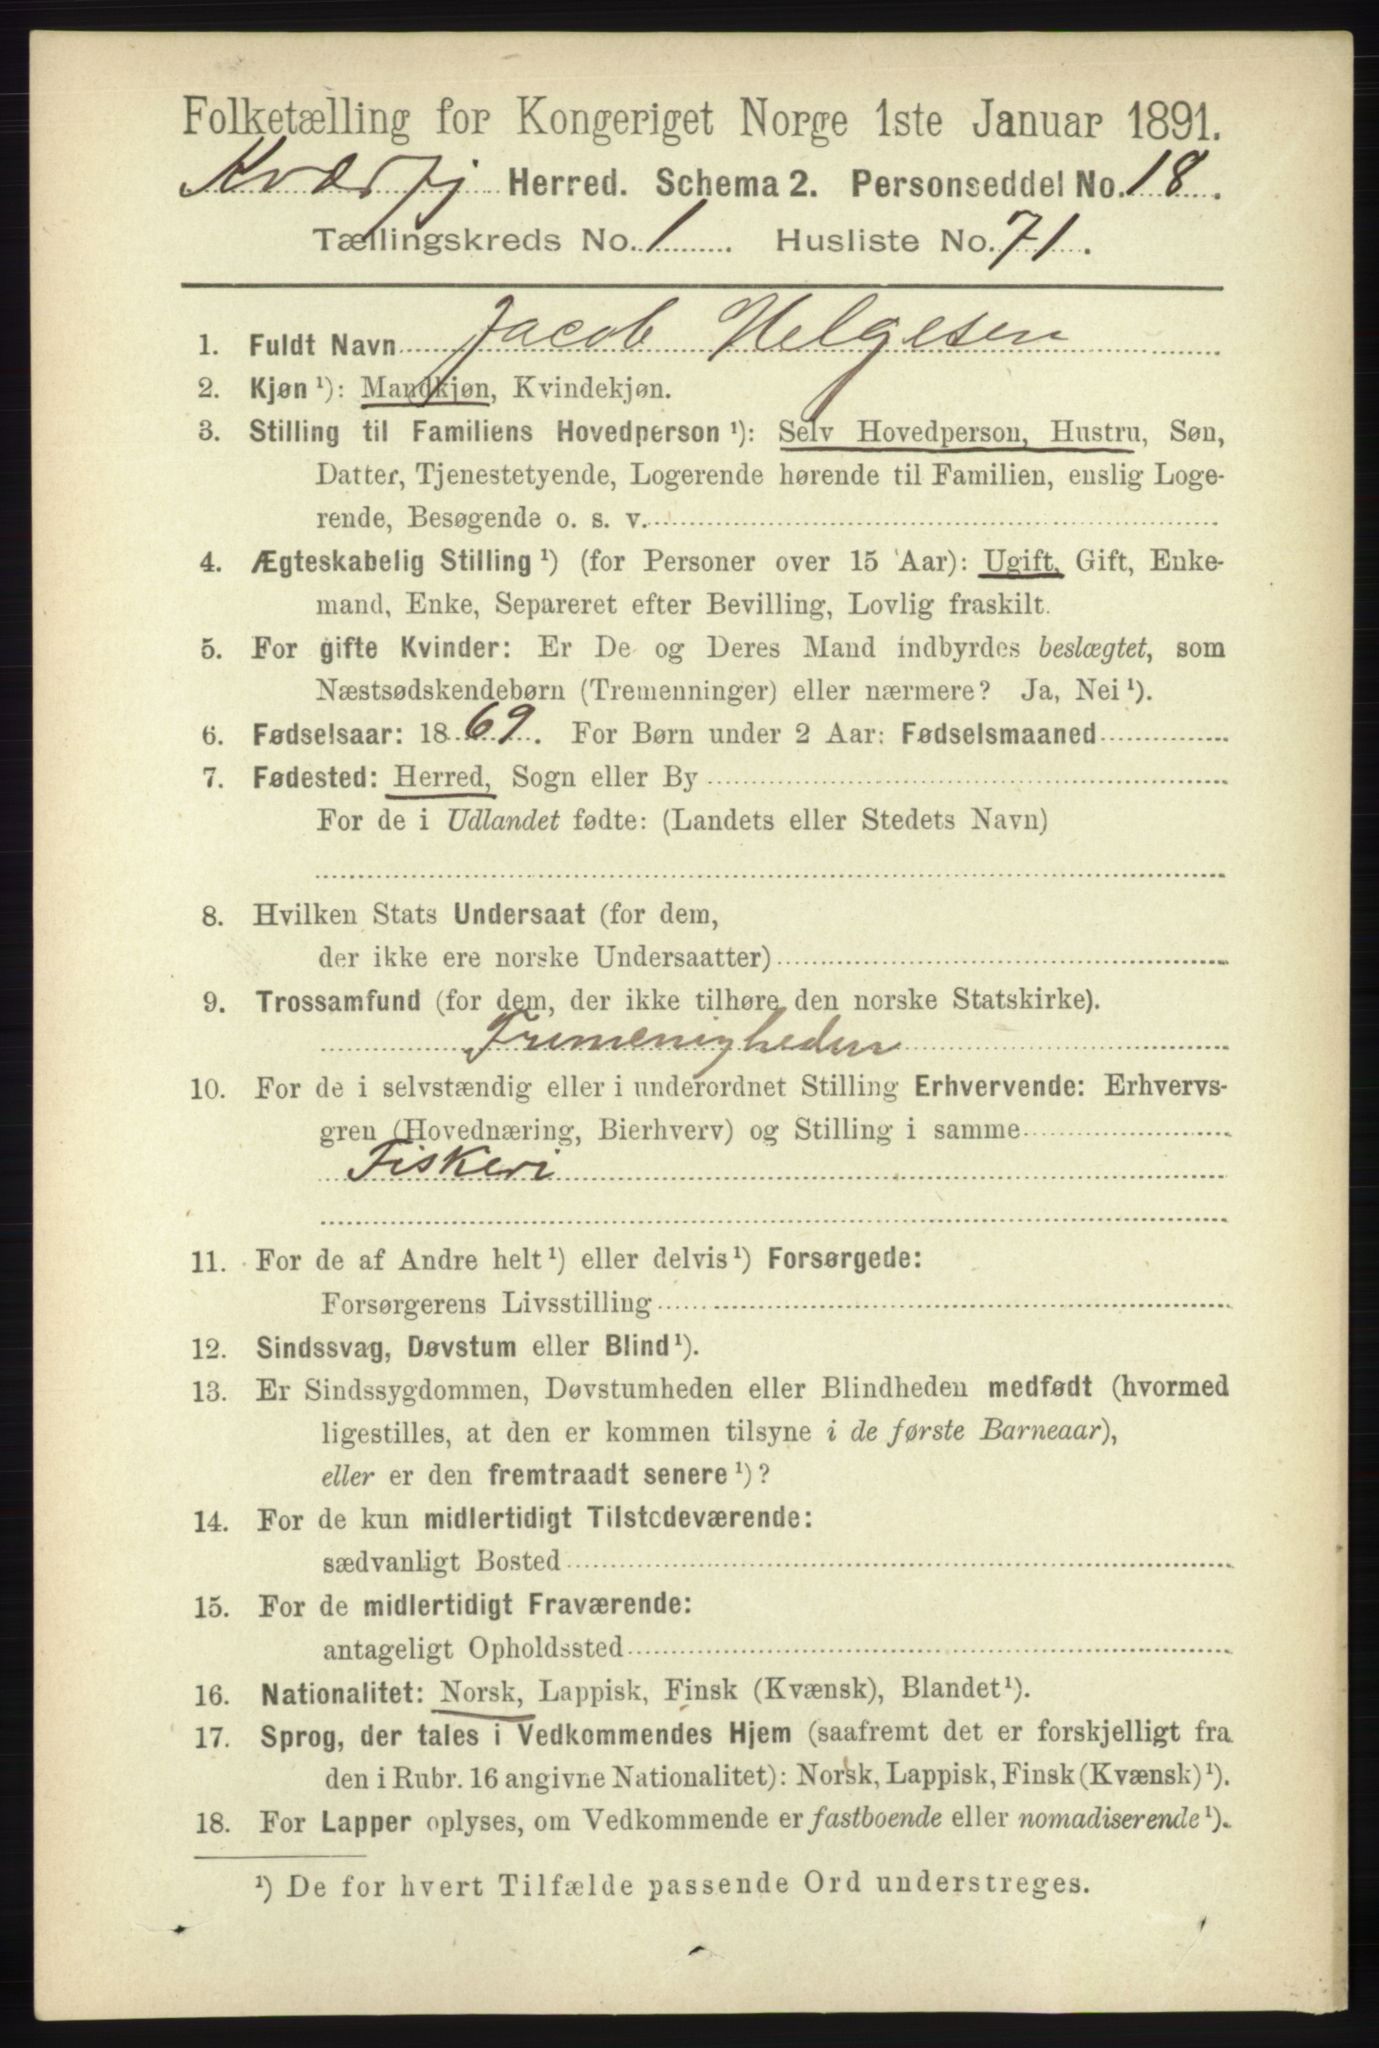 Folketælling for Kongeriget Norge 1ste Januar 1891.
Kværfj Herred. Schema 2. Personseddel No. 18.
Tællingskreds No. 1 Husliste No. 71.
1. Fuldt Navn Jacob Helgesen
2. Kjøn ¹): Mandkjøn, Kvindekjøn.
3. Stilling til Familiens Hovedperson ¹): Selv Hovedperson, Hustru, Søn,
Datter, Tjenestetyende, Logerende hørende til Familien, enslig Loge-
rende, Besøgende o. s. v.
4. Ægteskabelig Stilling ¹) (for Personer over 15 Aar): Ugift, Gift, Enke-
mand, Enke, Separeret efter Bevilling, Lovlig fraskilt.
5. For gifte Kvinder: Er De og Deres Mand indbyrdes beslægtet, som
Næstsødskendebørn (Tremenninger) eller nærmere? Ja, Nei ¹).
6. Fødselsaar: 1869. For Børn under 2 Aar: Fødselsmaaned
7. Fødested: Herred, Sogn eller By
For de i Udlandet fødte: (Landets eller Stedets Navn)
8. Hvilken Stats Undersaat (for dem,
der ikke ere norske Undersaatter)
9. Trossamfund (for dem, der ikke tilhøre den norske Statskirke).
Frimenigheden
10. For de i selvstændig eller i underordnet Stilling Erhvervende: Erhvervs-
gren (Hovednæring, Bierhverv) og Stilling i samme
Fiskeri
11. For de af Andre helt ¹) eller delvis ¹) Forsørgede:
Forsørgerens Livsstilling
12. Sindssvag, Døvstum eller Blind ¹).
13. Er Sindssygdommen, Døvstumheden eller Blindheden medfødt (hvormed
ligestilles, at den er kommen tilsyne i de første Barneaar),
eller er den fremtraadt senere ¹)?
14. For de kun midlertidigt Tilstedeværende:
sædvanligt Bosted
15. For de midlertidigt Fraværende:
antageligt Opholdssted
16. Nationalitet: Norsk, Lappisk, Finsk (Kvænsk), Blandet ¹).
17. Sprog, der tales i Vedkommendes Hjem (saafremt det er forskjelligt fra
den i Rubr. 16 angivne Nationalitet): Norsk, Lappisk, Finsk (Kvænsk) ¹).
18. For Lapper oplyses, om Vedkommende er fastboende eller nomadiserende ¹).
¹) De for hvert Tilfælde passende Ord understreges.